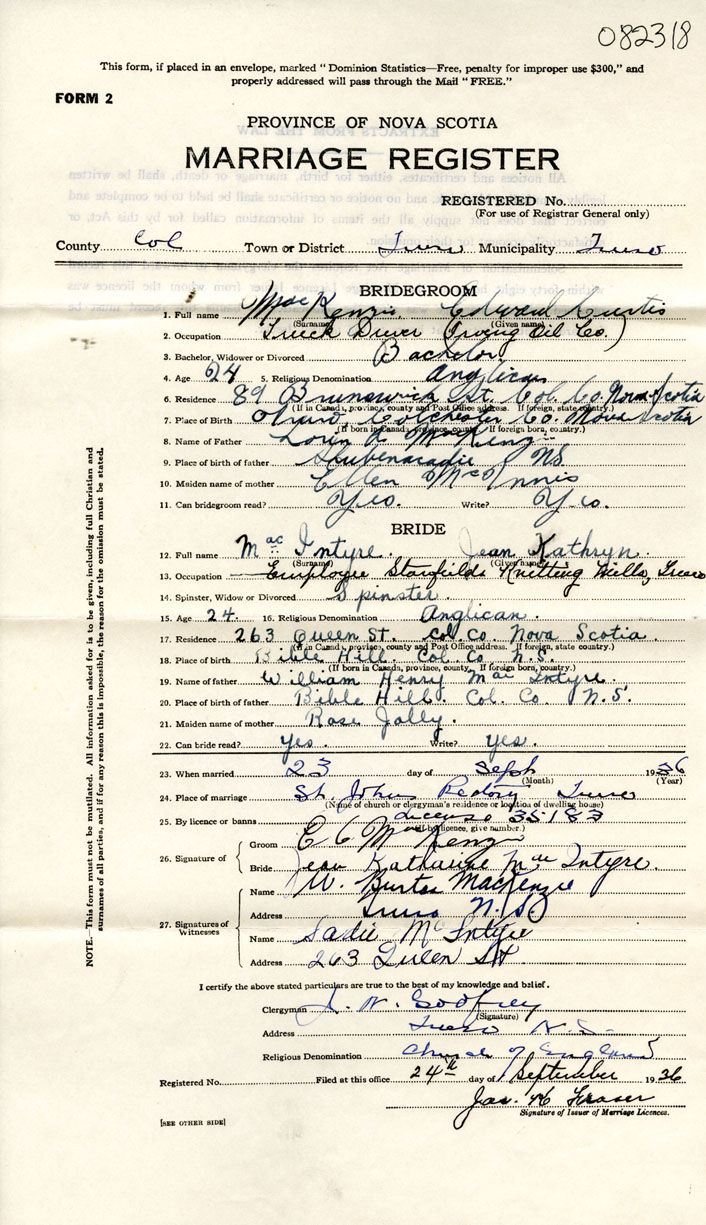 082318
This form, if placed in an envelope, marked "Dominion Statistics—Free, penalty for improper use $300," and
properly addressed will pass through the Mail "FREE."
FORM 2
PROVINCE OF NOVA SCOTIA
MARRIAGE REGISTER
REGISTERED No.
(For use of Registrar General only)
County Col Town or District Truro Municipality Truro
BRIDEGROOM
1. Full name MacKenzie Edward Curtis
(Surname) (Given name)
2. Occupation Truck Driver (Irving Oil Co.)
3. Bachelor, Widower or Divorced Bachelor
4. Age 24 5. Religious Denomination Anglican
6. Residence 89 Brunswick St. Col. Co. Nova Scotia
(If in Canada, province, county and Post Office address. If foreign, state country.)
7. Place of Birth Colchester Co. Nova Scotia
(If born in Canada, province, county. If foreign born, country.)
8. Name of Father MacKenzie
9. Place of birth of father Shubenacadie NS
10. Maiden name of mother Ellen McInnis
11. Can bridegroom read? Yes. Write? Yes.
BRIDE
12. Full name MacIntyre. Jean Kathryn.
(Surname) (Given name)
13. Occupation Employee Stanfields Knitting Mills, Truro
14. Spinster, Widow or Divorced Spinster.
15. Age 24. 16. Religious Denomination Anglican.
17. Residence 263 Queen St. Col. Co. Nova Scotia.
(If in Canada, province, county and Post Office address. If foreign, state country.)
18. Place of birth Bible Hill. Col. Co N.S.
(If born in Canada, province, county. If foreign born, country.)
19. Name of father William Henry MacIntyre.
20. Place of birth of father Bible Hill. Col. Co. N.S.
21. Maiden name of mother Rose Jolly.
22. Can bride read? yes. Write? yes.
23. When married 23 day of Sept 1936
(Month) (Year)
24. Place of marriage St. Johns Rectory Truro
(Name of church or clergyman's residence or location of dwelling house)
25. By licence or banns license 35183
(If by licence, give number.)
26. Signature of
Groom E C MacKenzie
Bride Jean Katharine MacIntyre.
27. Signatures of Witnesses
Name W. Burton MacKenzie
Address Truro N.S.
Name Sadie McIntyre
Address 263 Queen St
I certify the above stated particulars are true to the best of my knowledge and belief.
Clergyman J. W. Godfrey
(Signature)
Address Truro N.S.
Religious Denomination Church of England
Registered No. Filed at this office 24th day of September 1936
Jas. H Fraser
Signature of Issuer of Marriage Licences.
[SEE OTHER SIDE]
NOTE.—This form must not be mutilated. All information asked for is to be given, including full Christian and
surnames of all parties, and if for any reason this is impossible, the reason for the omission must be stated.